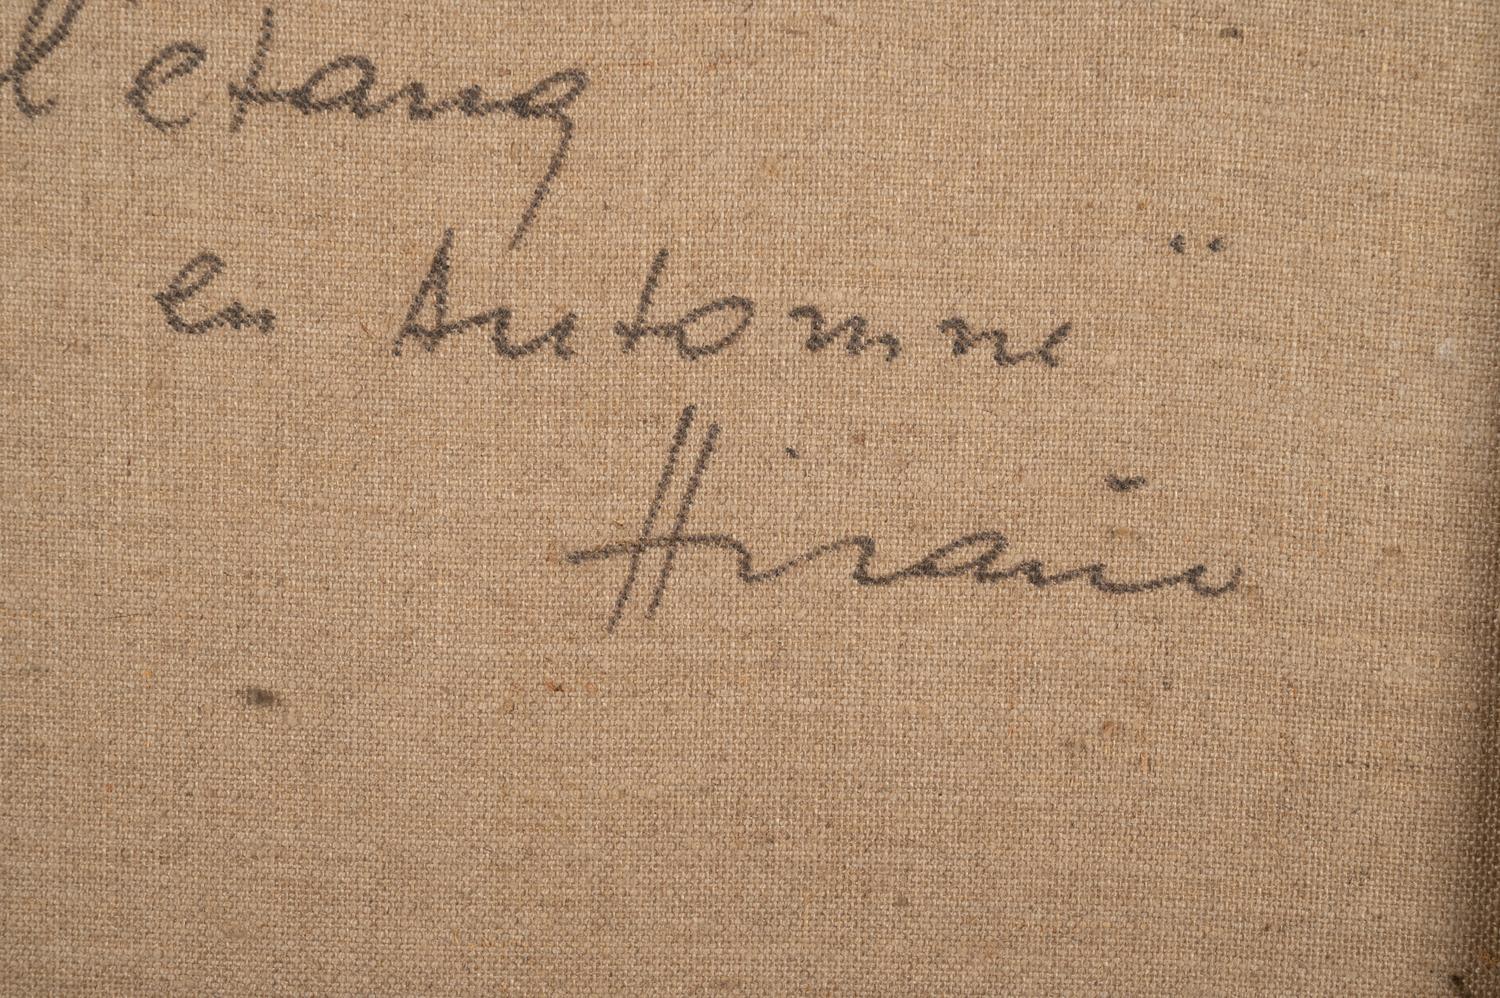 l'etang
en Automne "
Hirano